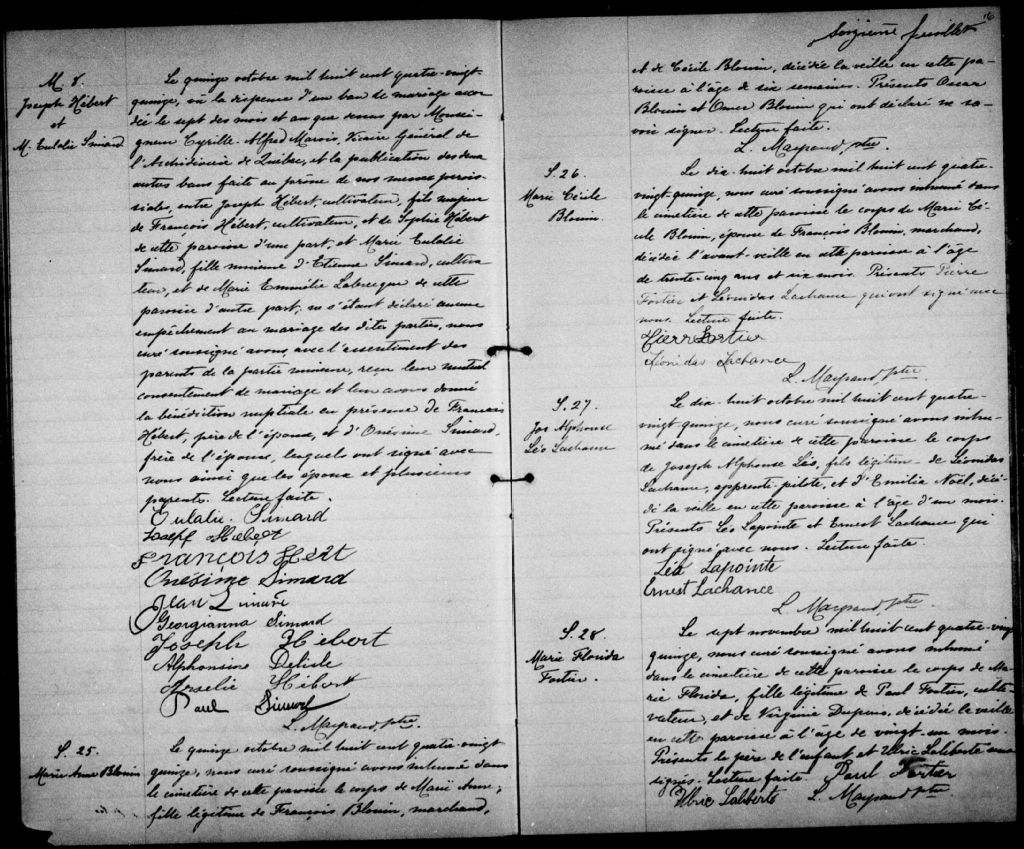 M 8.
Joseph Hébert
et
M. Eulalie Simard
Le quinze octobre mil huit cent quatre-vingt-
quinze, vu la dispense d'un ban de mariage accor
dée le sept des mois et an que dessus par Monsei-
gneur Cyrille-Alfred Marois, Vicaire Général de
l'Archidiocèse de Québec, et la publication des deux
autres bans faite au prône de nos messes parois-
siales, entre Joseph Hébert, cultivateur, fils majeur
de François Hébert, cultivateur, et de Sophie Hébert
de cette paroisse d'une part, et Marie Eulalie
Simard, fille mineure d'Etienne Simard, cultiva
teur, et de Marie Emmélie Labrecque de cette
paroisse d'autre part, ne s'étant déclaré aucun
empêchement au mariage des dites parties, nous
curé soussigné avons, avec l'assentiment des
parents de la partie mineure, reçu leur mutuel
consentement de mariage et leur avons donné
la bénédiction nuptiale en présence de François
Hébert, père de l'époux, et d'Onésime Simard,
frère de l'épouse, lesquels ont signé avec
nous ainsi que les époux et plusieurs
parents. Lecture faite.
Eulalie Simard
Joseph Hebert
François
Onésime Simard
Jean Simard
Georgianna Simard
Joseph Hebert
Alphonsine Delisle
Hébert
Paul Simard
L. Mayrand, ptre.
S. 25.
Marie Anne Blouin
Le quinze octobre mil huit cent quatre-vingt
quinze, nous curé soussigné avons inhumé dans
le cimetière de cette paroisse le corps de Marie Anne,
fille légitime de François Blouin, marchand,
16
Seizième feuillet
et de Cécile Blouin, décédée la veille en cette pa-
roisse à l'âge de six semaines. Présents Oscar
Blouin et Omer Blouin qui ont déclaré ne sa-
voir signer. Lecture faite.
L. Mayrand, ptre.
S. 26.
Marie Cécile
Blouin.
Le dix-huit octobre mil huit cent quatre-
vingt-quinze, nous curé soussigné avons inhumé dans
le cimetière de cette paroisse le corps de Marie Cé-
cile Blouin, épouse de François Blouin, marchand,
décédée l'avant-veille en cette paroisse à l'âge
de trente-cinq ans et six mois. Présents Pierre
Fortier et Léonidas Lachance qui ont signé avec
nous. Lecture faite.
Pierre Fortier
Léonidas Lachance
L. Mayrand, ptre.
S. 27.
Jos Alphonse
Léo Lachance
Le dix-huit octobre mil huit cent quatre-
vingt-quinze, nous curé soussigné avons inhu-
mé dans le cimetière de cette paroisse le corps
de Joseph Alphonse Léo, fils légitime de Léonidas
Lachance, apprenti-pilote, et d'Emilia Noël, décé-
dé la veille en cette paroisse à l'âge d'un mois.
Présents Léo Lapointe et Ernest Lachance qui
ont signé avec nous. Lecture faite.
Léo Lapointe
Ernest Lachance
L. Mayrand, ptre.
S. 28.
Marie Florida
Fortier.
Le sept novembre mil huit cent quatre-vingt
quinze, nous curé soussigné avons inhumé
dans le cimetière de cette paroisse le corps de Ma-
rie Florida, fille légitime de Paul Fortier, culti-
vateur, et de Virginie Dupuis, décédée la veille
en cette paroisse à l'âge de vingt-un mois.
Présents le père de l'enfant et Ulric Laliberté sous
signés. Lecture faite
Paul Fortier
Ulric Laliberté
L. Mayrand ptre.